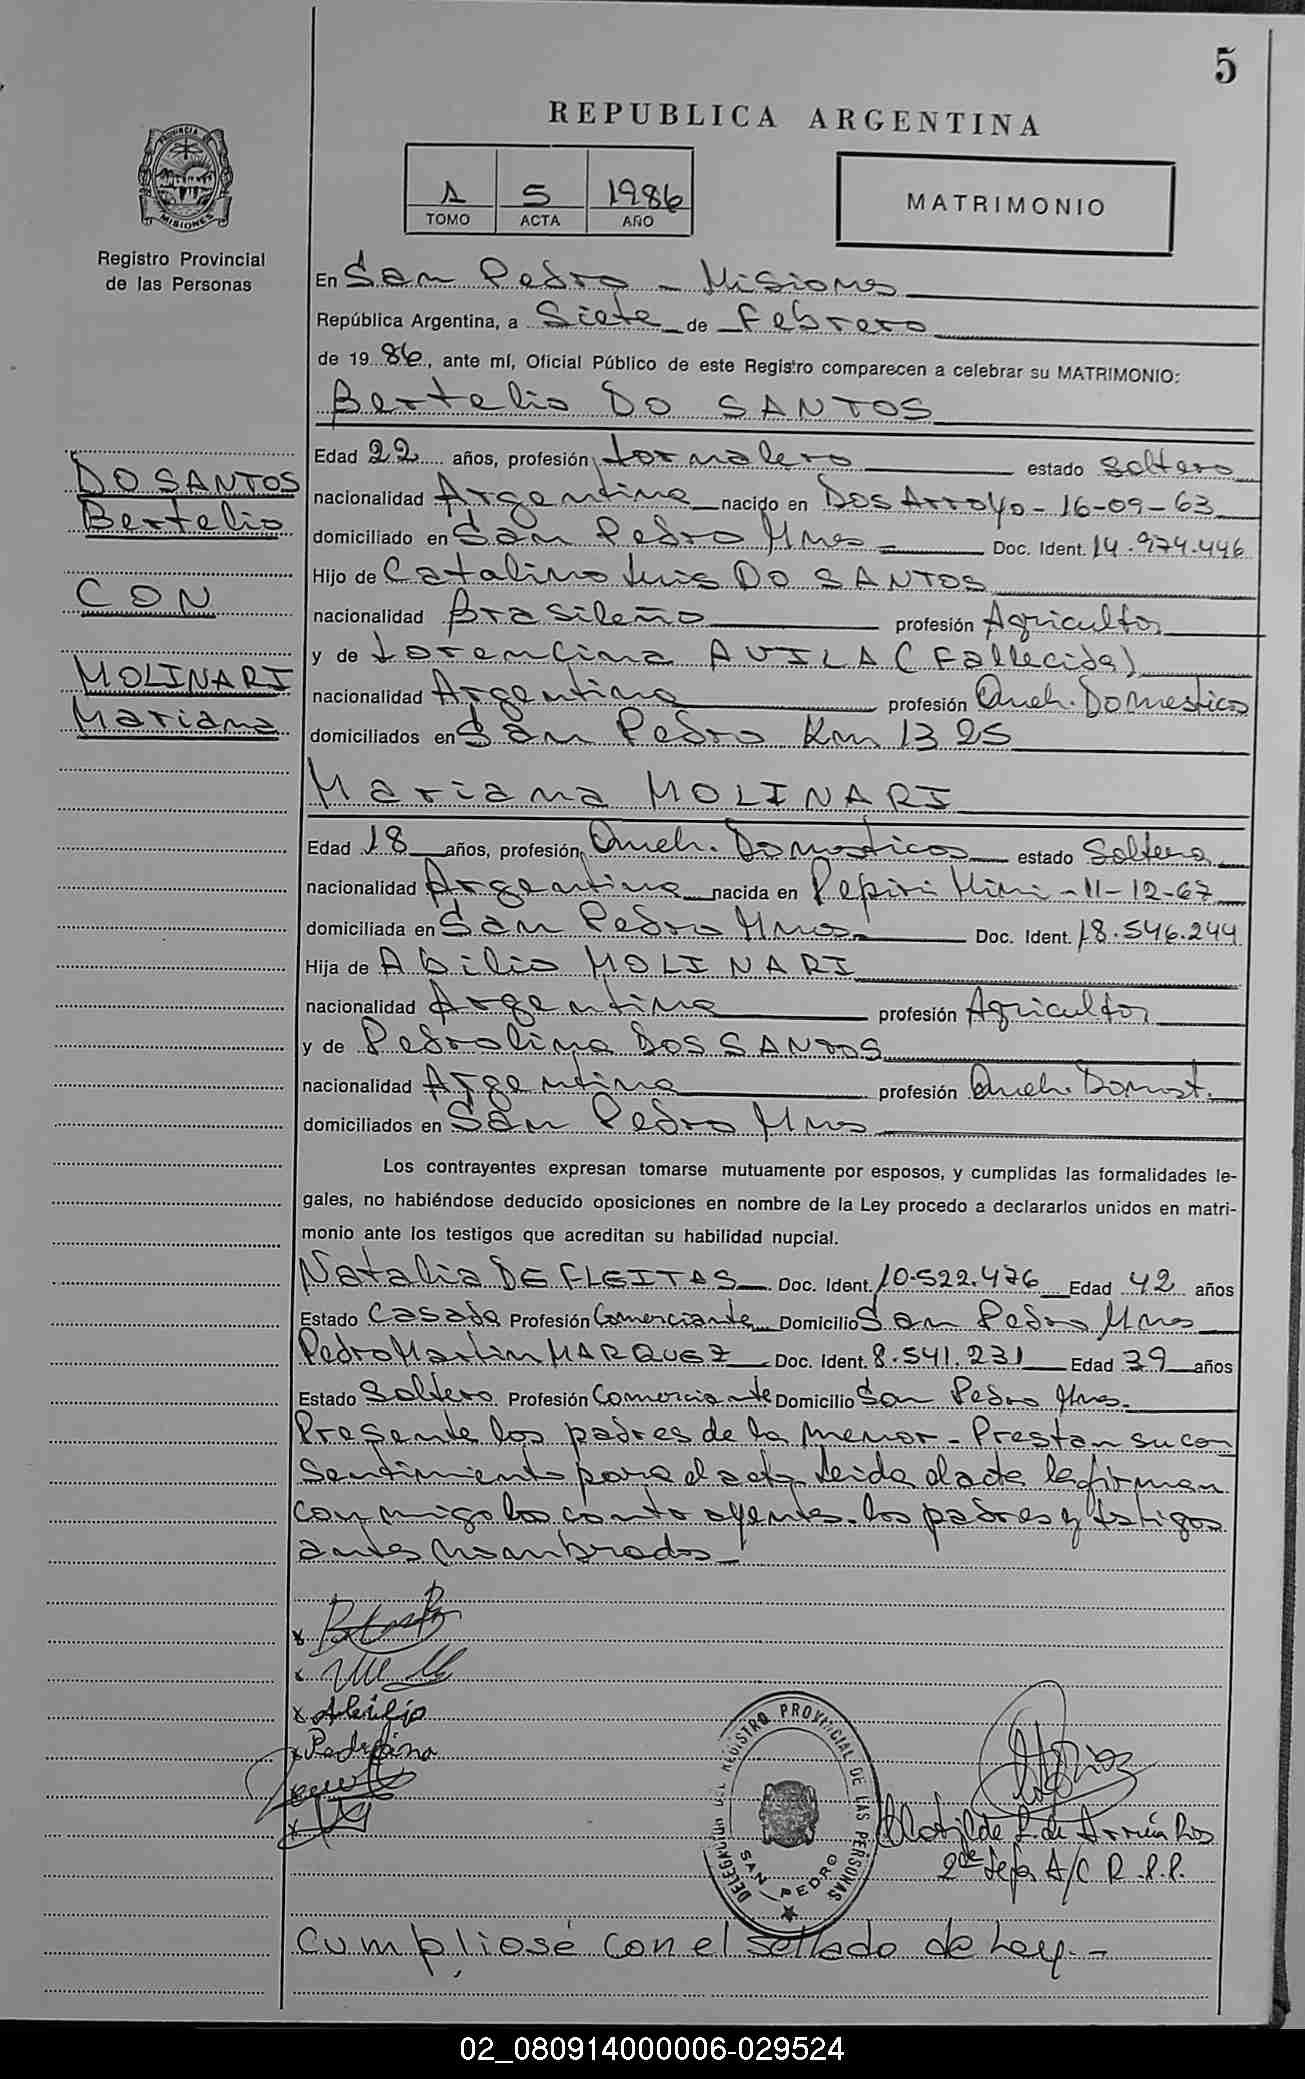 5
REPUBLICA ARGENTINA
PROVINCIA DE
MISIONES
Registro Provincial
de las Personas
1 5 1986
TOMO ACTA AÑO
MATRIMONIO
En San Pedro - Misiones
República Argentina, a Siete de Febrero
de 19 86, ante mí, Oficial Público de este Registro comparecen a celebrar su MATRIMONIO:
Bertelio DO SANTOS
Edad 22 años, profesión Jornalero estado Soltero
nacionalidad Argentina nacido en Dos Arroyo - 16-09-63
domiciliado en San Pedro Mnes Doc. Ident. 14.974.446
Hijo de Catalino Luis DO SANTOS
nacionalidad Brasileño profesión Agricultor
y de Lorencina AVILA (Fallecida)
nacionalidad Argentina profesión Queh. Domestico
domiciliados en San Pedro Km 1325
Mariana MOLINARI
Edad 18 años, profesión Queh. Domesticos estado Soltera
nacionalidad Argentina nacida en Pepiri Mini - 11-12-67
domiciliada en San Pedro Mnes. Doc. Ident. 18.546.244
Hija de Abilio MOLINARI
nacionalidad Argentina profesión Agricultor
y de Pedrolina DOS SANTOS
nacionalidad Argentina profesión Queh. Domest.
domiciliados en San Pedro Mnes
DO SANTOS
Bertelio
CON
MOLINARI
Mariana
Los contrayentes expresan tomarse mutuamente por esposos, y cumplidas las formalidades le-
gales, no habiéndose deducido oposiciones en nombre de la Ley procedo a declararlos unidos en matri-
monio ante los testigos que acreditan su habilidad nupcial.
Natalia DE FLEITAS Doc. Ident. 10.522.476 Edad 42 años
Estado Casada Profesión Comerciante Domicilio San Pedro Mnes
Pedro Martin MARQUEZ Doc. Ident. 8.541.231 Edad 39 años
Estado Soltero Profesión Comerciante Domicilio San Pedro Mnes.
Presente los padres de la menor - Prestan su con
sentimiento para el acto. Leida el acta la firman
conmigo los contrayentes. los padres y testigos
antes nombrados -
x Abilio
x Pedrolina
DELEGACION DEL REGISTRO PROVINCIAL DE LAS PERSONAS
SAN PEDRO
Clotilde de
2da Jefa A/C R.P.P.
Cumpliosé con el sellado de Ley.-
02_080914000006-029524